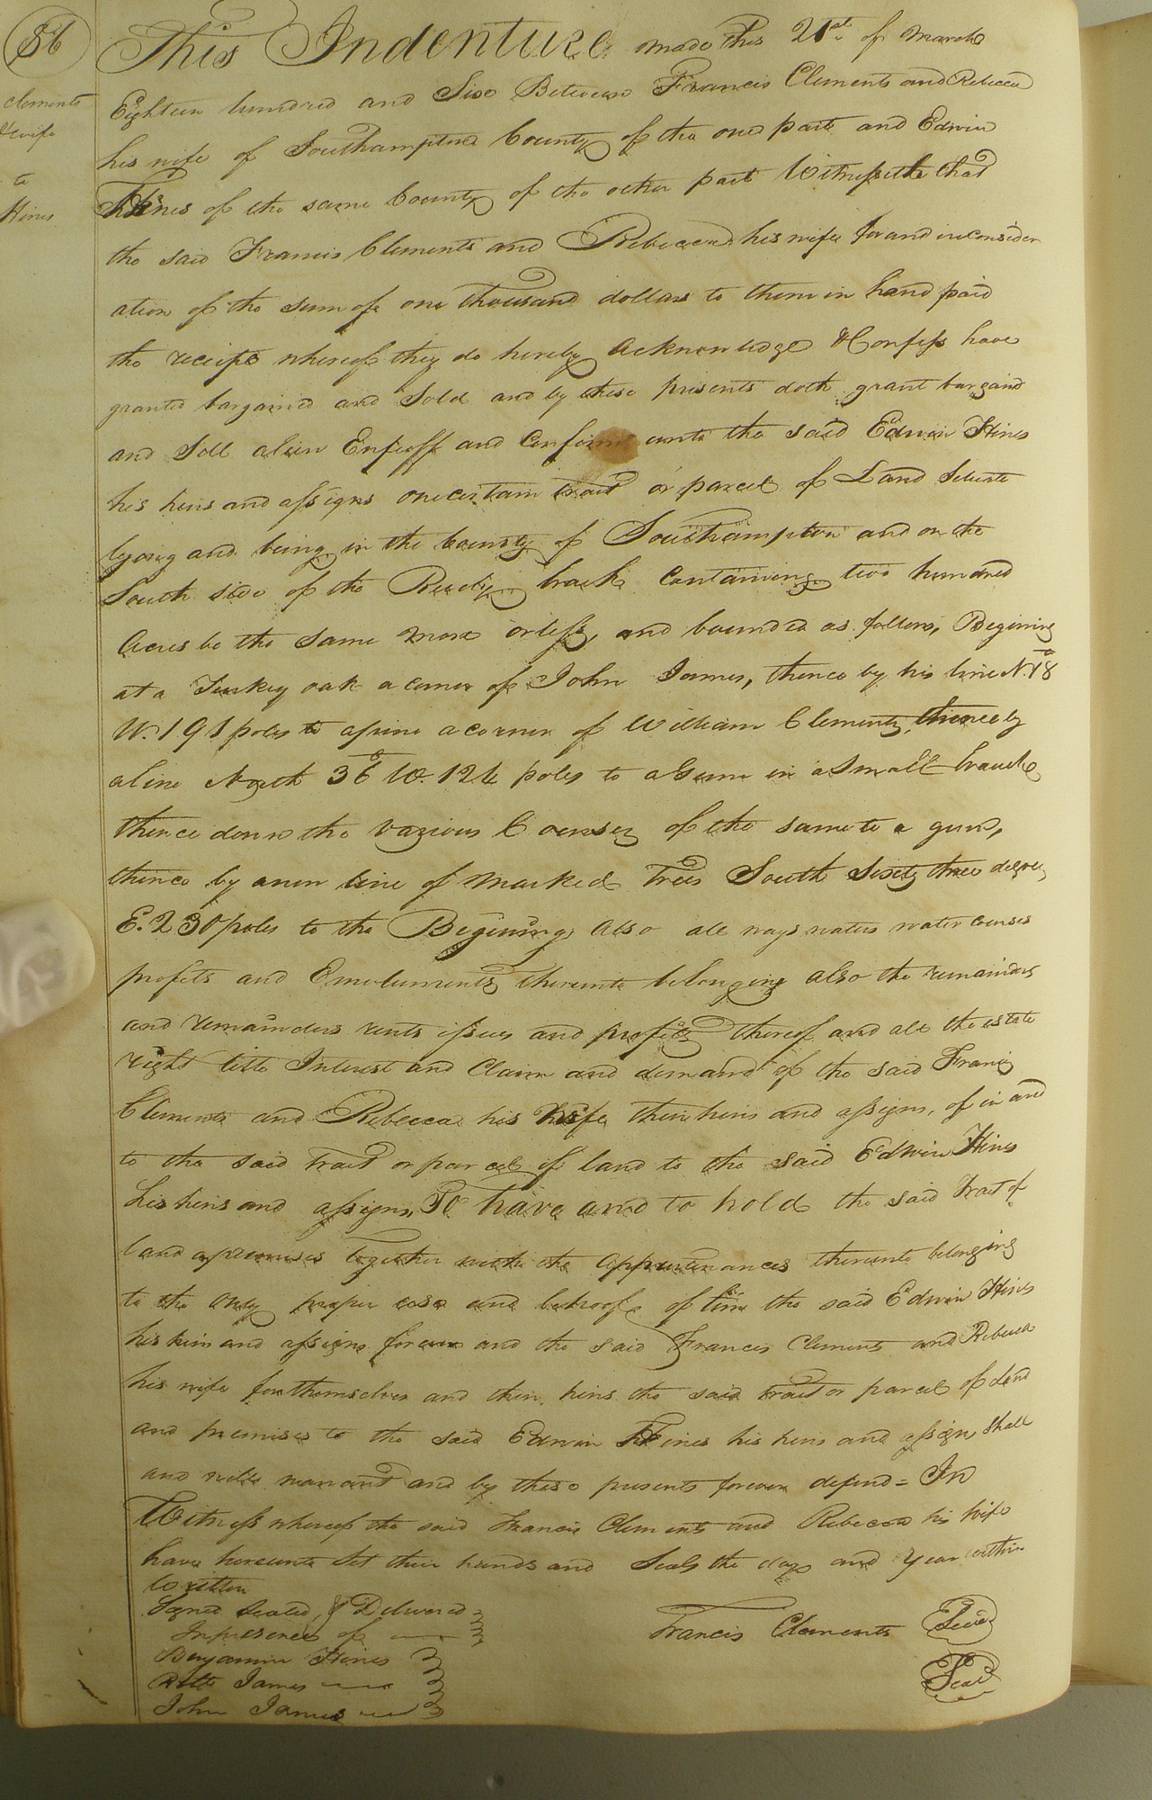 86
Clements
& wife
to
Hines
This Indenture made this 21st of March
Eighteen hundred and Six Between Francis Clements and Rebecca
his wife of Southampton County of the one part and Edwin
Hines of the same County of the other part Witnesseth that
the said Francis Clements and Rebecca his wife for and inconsider
ation of the sum of one thousand dollars to them in hand paid
the receipt whereof they do hereby acknowledge & Confess have
granted bargained and Sold and by these presents doth grant bargand
and Sell alien Enfeoff and Confirm unto the said Edwin Hines
his heirs and assigns one certain tract or parcel of Land Situate
lying and being in the County of Southampton and on the
South side of the Reedy branch Containing two hundred
Acres be the same more or less, and bounded as follows, Begining
at a Turkey oak a corner of John James, thence by his line N. 18
W. 191 poles to a pine a corner of William Clements, thence by
a line North 36 W. 126 poles to a Gum in a Small branch,
thence down the various Courses of the same to a gum,
thence by a new line of marked trees South Sixty three degrees
E. 230 poles to the Begining Also all ways waters water courses
profits and Emoluments thereunto belonging also the remainder
and remainders rents issues and profits thereof and all the estate
right title Interest and Claim and demand of the said Francis
Clements and Rebecca his Wife their heirs and assigns, of in and
to the said tract or parcel of land to the said Edwin Hines
his heirs and assigns, To have and to hold the said tract of
land & premises together with the Appurtenances thereunto belonging
to the only proper use and behoof of him the said Edwin Hines
his heirs and assigns forever and the said Francis Clements and Rebecca
his wife for themselves and their heirs the said tract or parcel of Land
and premises to the said Edwin Hines his heirs and assigns Shall
and will warrant and by these presents forever defend = In
Witness whereof the said Francis Clements and Rebecca his wife
have hereunto Set their hands and Seals the day and year within
Written
Signed Sealed, & Delivered
In presence of
Benjamin Hines
James
John James
Francis Clements Seal
Seal